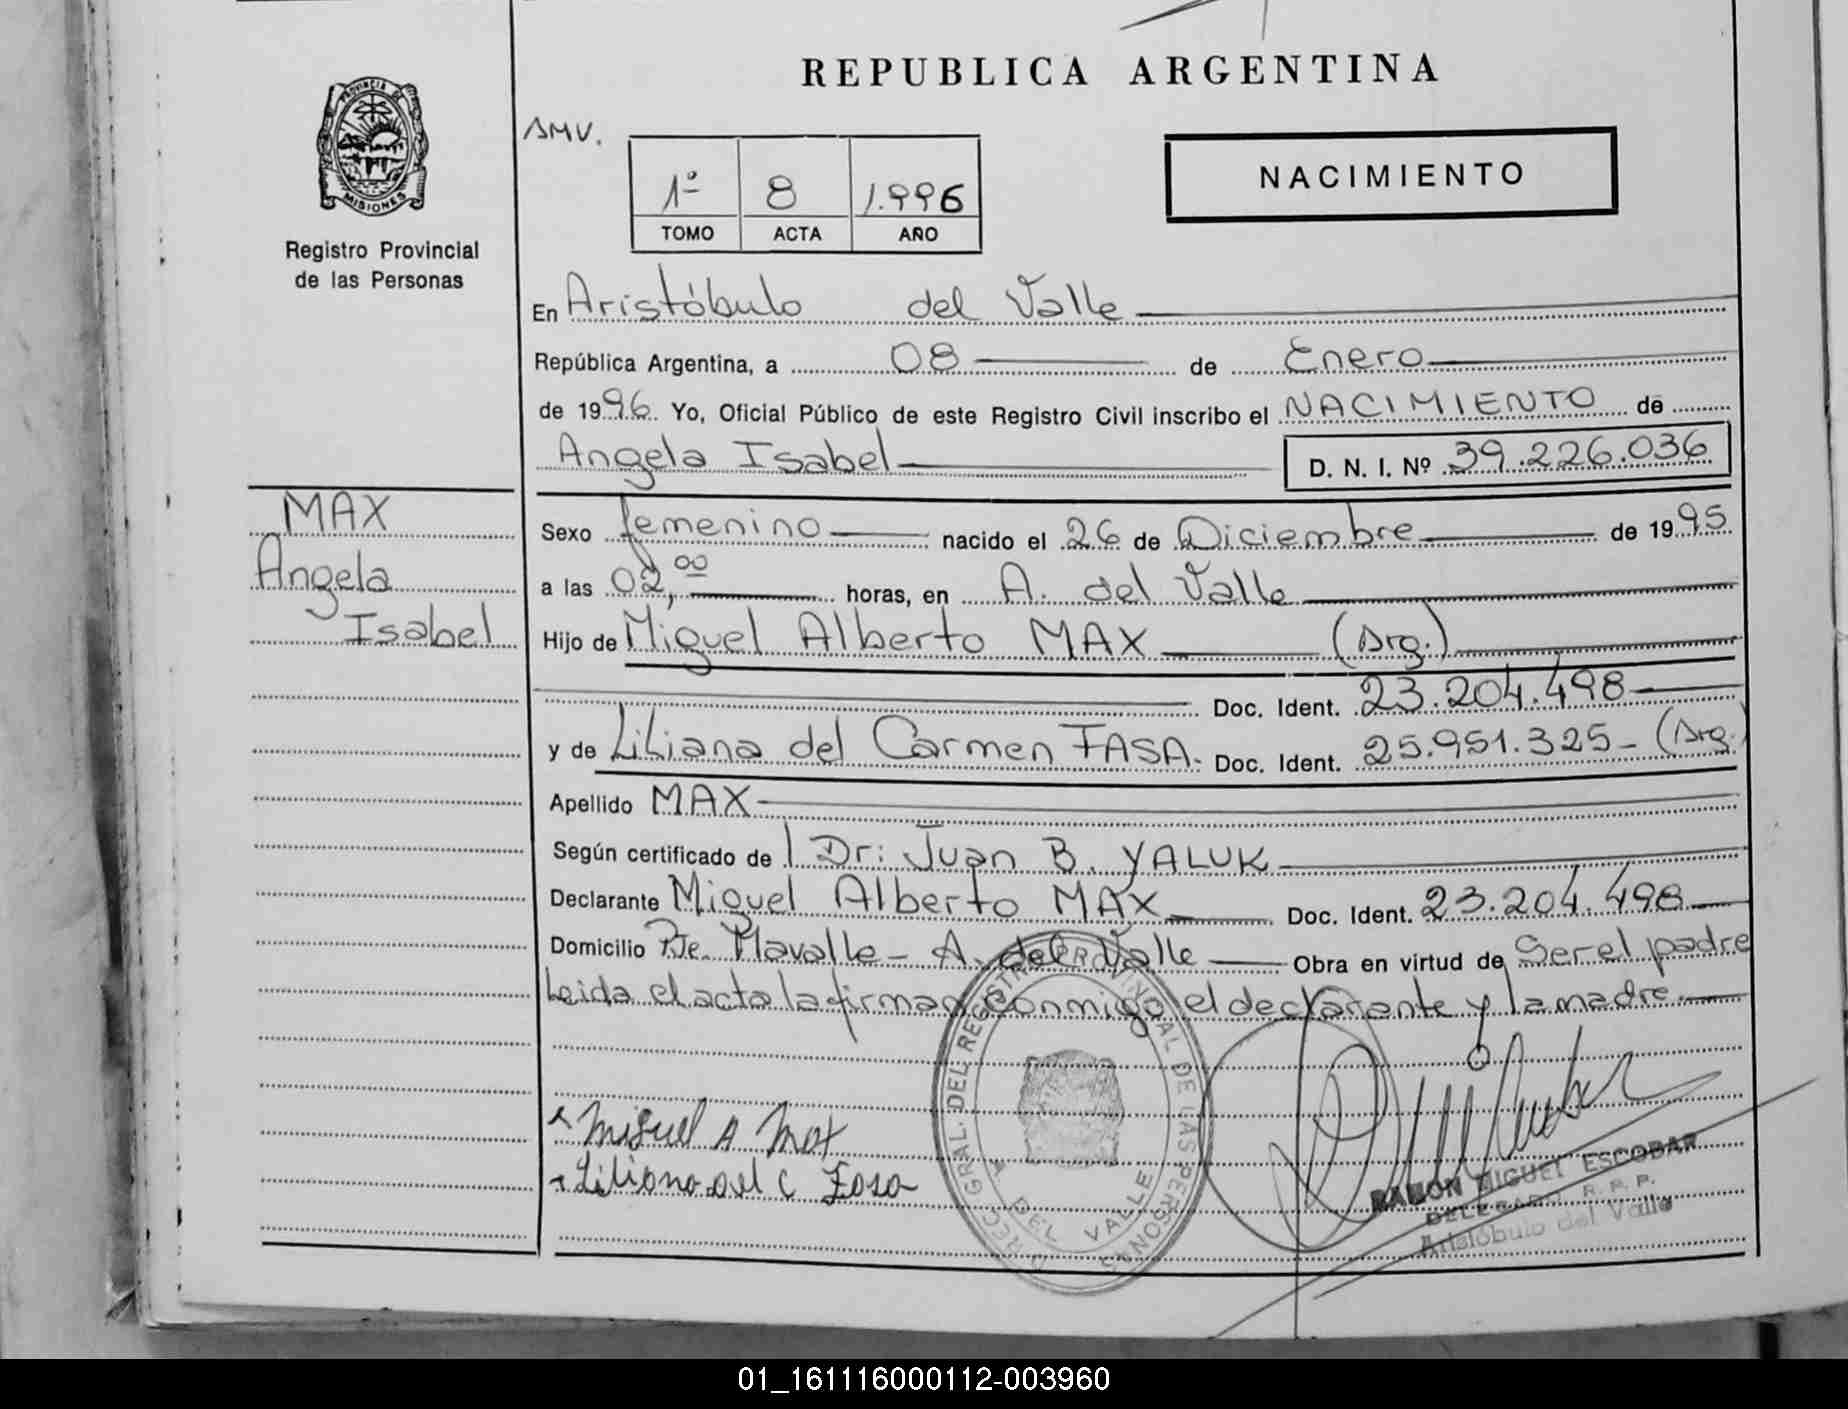 REPUBLICA ARGENTINA
PROVINCIA DE MISIONES
Registro Provincial
de las Personas
AMV.
1º 8 1.996
TOMO ACTA AÑO
NACIMIENTO
En Aristóbulo del Valle
República Argentina, a 08 de Enero
de 1996 Yo, Oficial Público de este Registro Civil inscribo el NACIMIENTO de
Angela Isabel D. N. I. Nº 39.226.036
MAX
Angela
Isabel
Sexo femenino nacido el 26 de Diciembre de 1995
a las 02,00 horas, en A. del Valle
Hijo de Miguel Alberto MAX (Arg.)
Doc. Ident. 23.204.498
y de Liliana del Carmen FASA. Doc. Ident. 25.951.325 (Arg.)
Apellido MAX
Según certificado de Dr: Juan B. YALUK
Declarante Miguel Alberto MAX Doc. Ident. 23.204.498
Domicilio A. del Valle Obra en virtud de Ser el padre
Leida el acta la firman conmigo el declarante y la madre.
Miguel A Max
Liliana del C
DIREC. GRAL. DEL REGISTRO PROVINCIAL DE LAS PERSONAS
A. DEL VALLE
RAMON MIGUEL ESCOBAR
DELEGADO R. P. P.
Aristóbulo del Valle
01_161116000112-003960